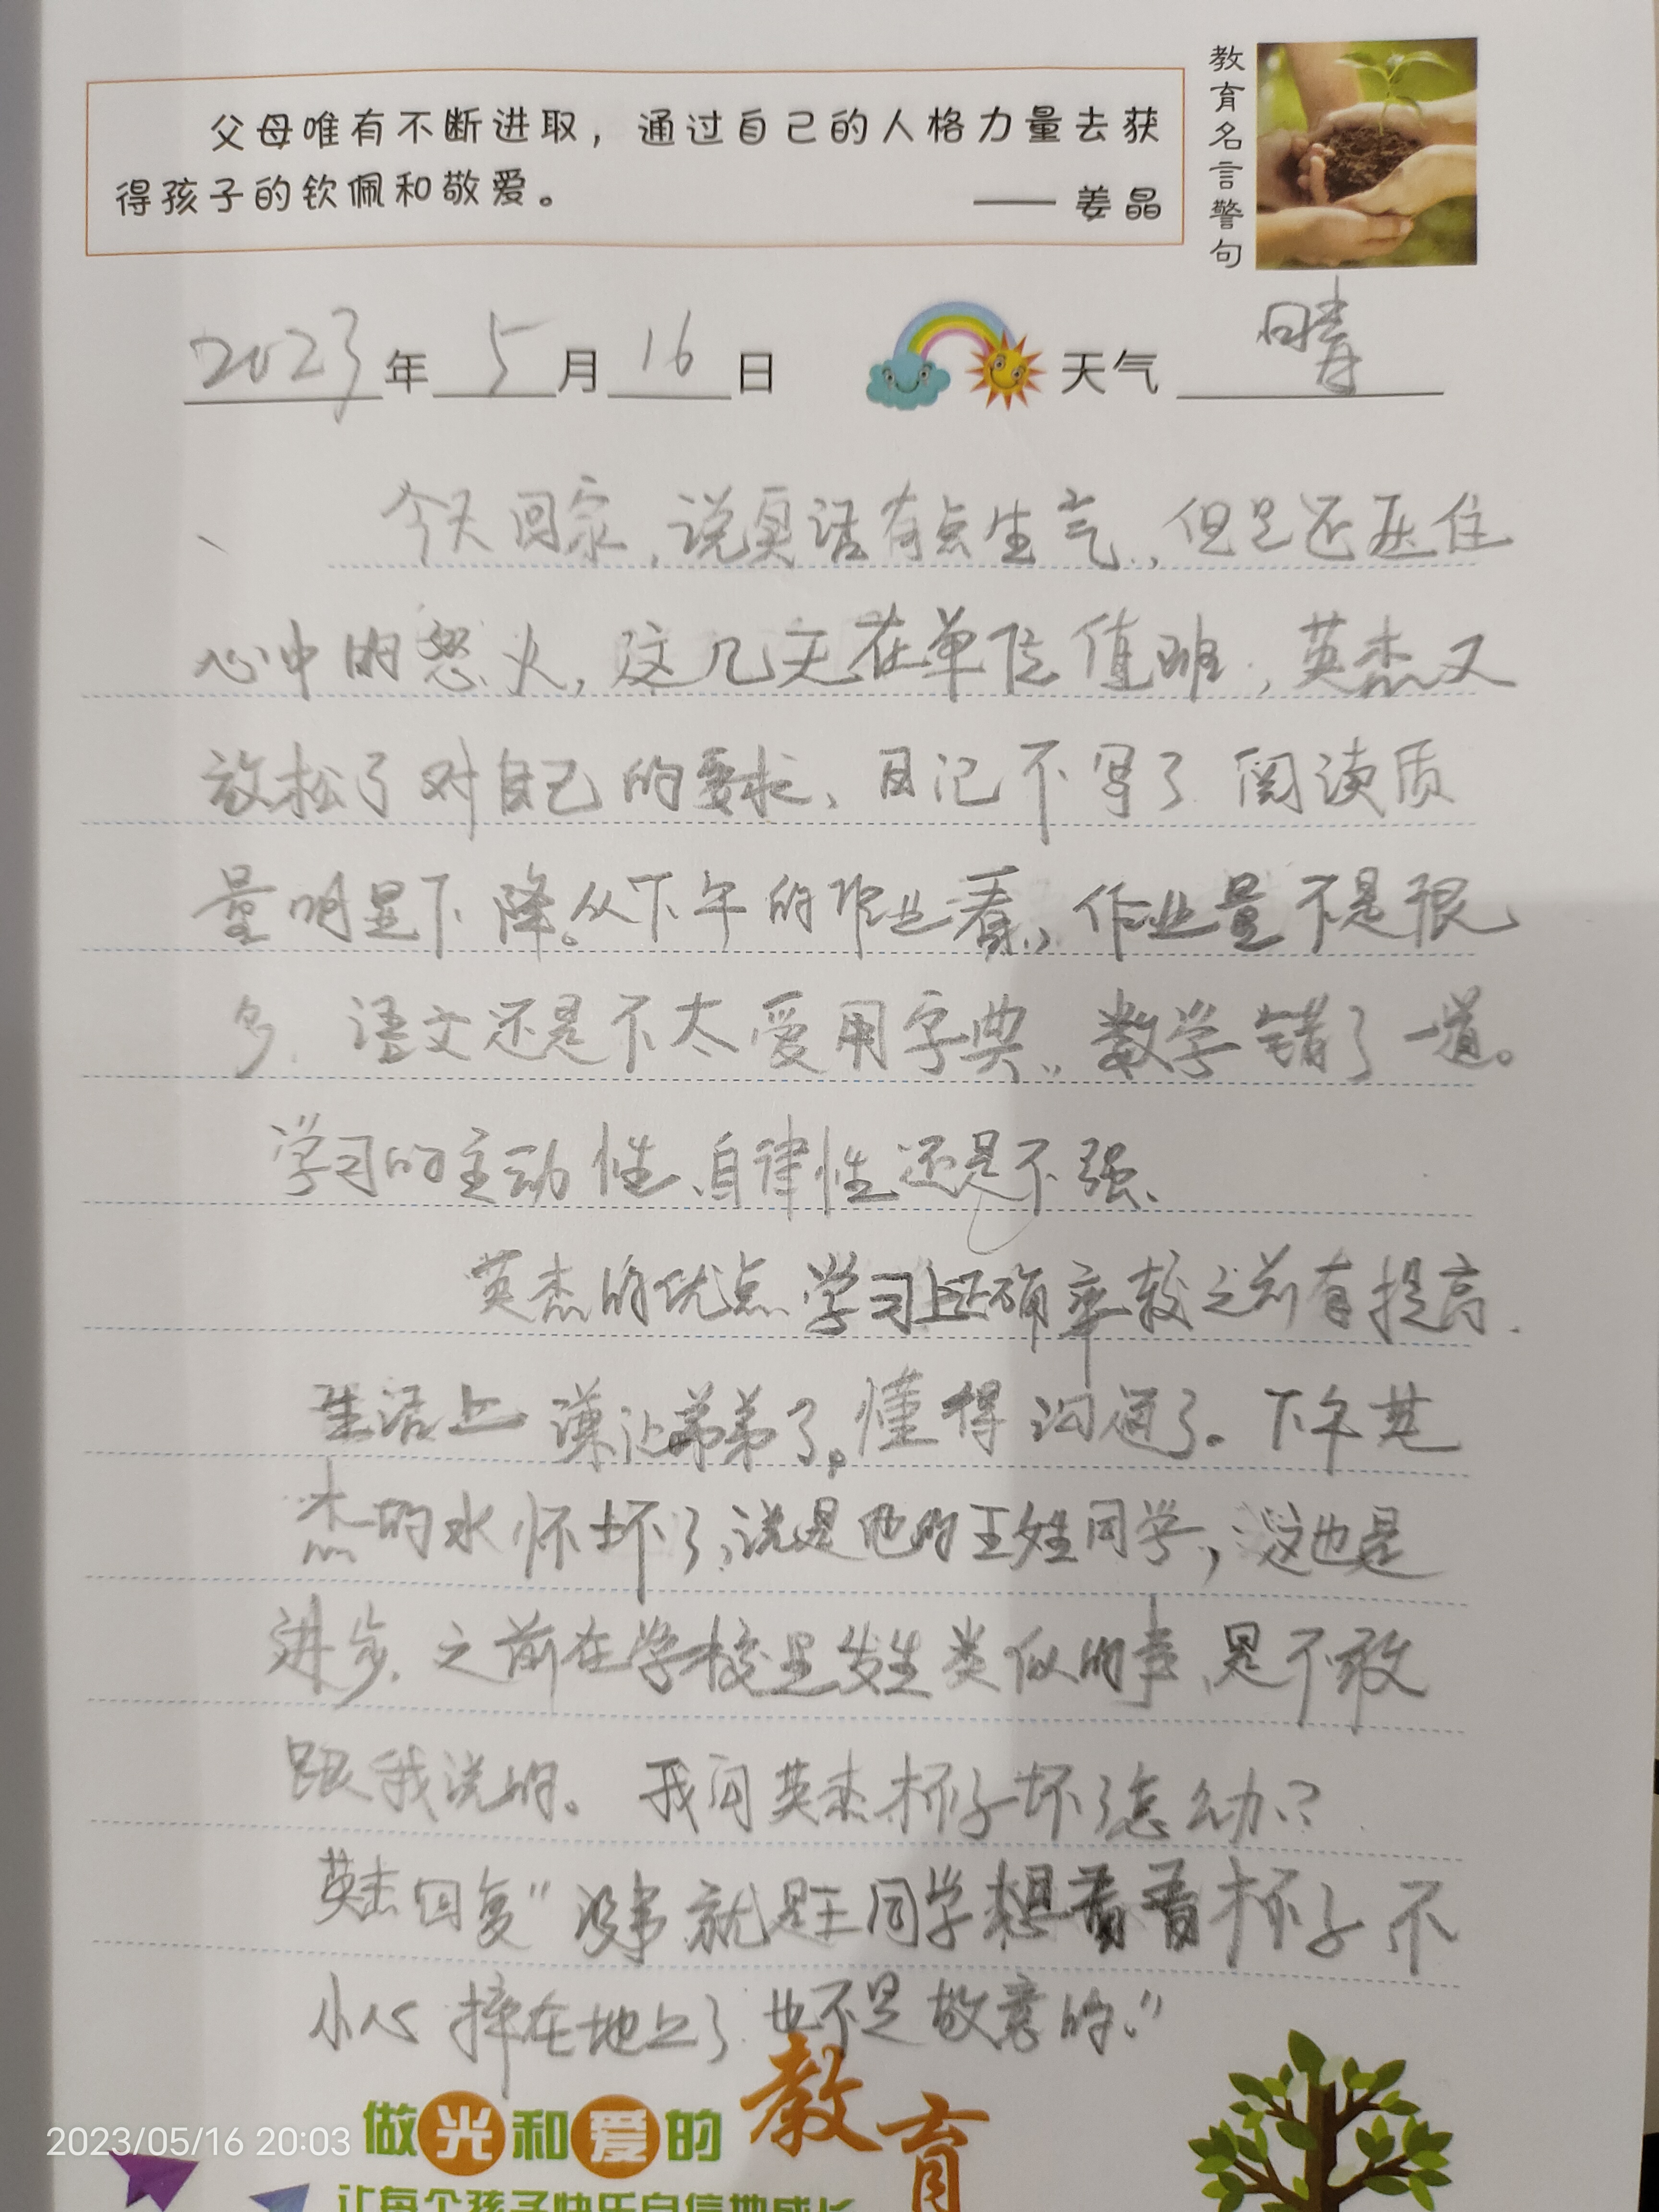 父母唯有不断进取，通过自己的人格力量去获
得孩子的钦佩和敬爱。 —— 姜晶
教育名言警句
2023年5月16日 天气 晴
今天回家，说真话有点生气，但是还压住
心中的怒火，这几天在单位值班，英杰又
放松了对自己的要求、日记不写了 阅读质
量明显下降。从下午的作业看，作业量不是很
多、语文还是不太爱用字典，数学错了一道。
学习的主动性、自律性还是不强、
英杰的优点 学习上正确率较之前有提高.
生活上 谦让弟弟了。懂得沟通了。下午英
杰的水怀坏了,说是他的王姓同学，这也是
进步. 之前在学校里发生类似的事、是不敢
跟我说的。 我问英杰杯子坏了怎么办？
英杰回复"没事 就是王同学想看看杯子不
小心摔在地上了 也不是故意的."
做光和爱的教育
让每个孩子快乐自信地成长
2023/05/16 20:03